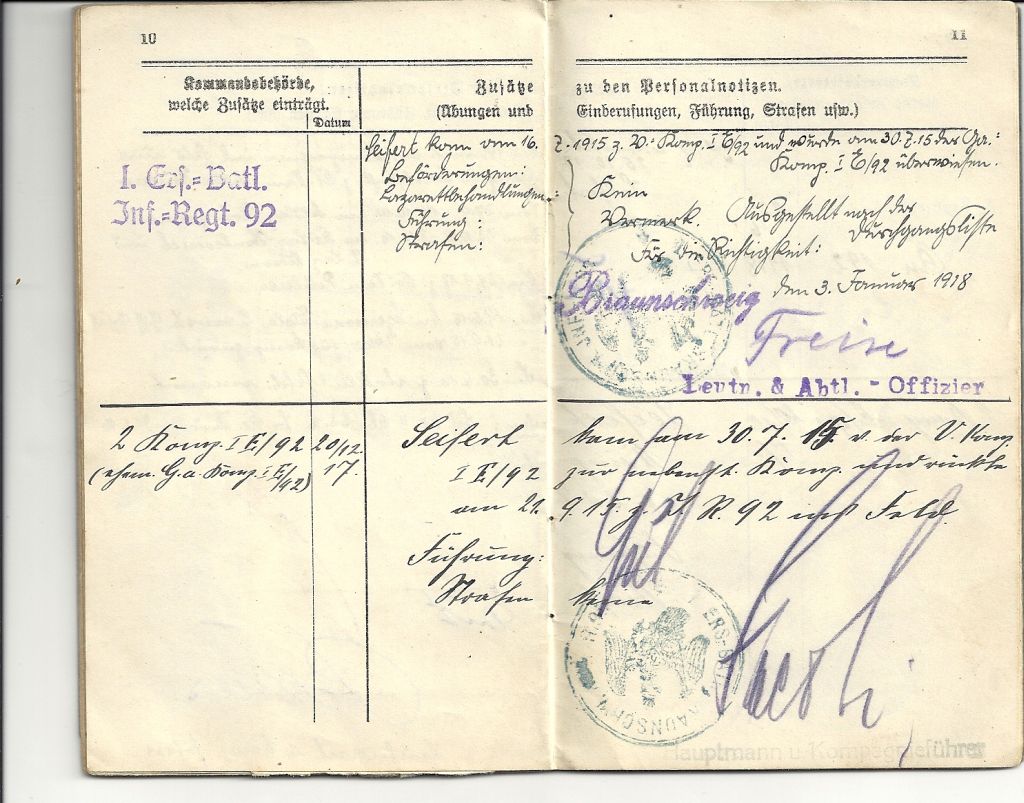 10
11
Kommandobehörde,
welche Zusätze einträgt.
Datum
Zusätze zu den Personalnotizen.
(Übungen und Einberufungen, Führung, Strafen usw.)
I. Ers.=Batl.
Inf.=Regt. 92
Seifert kam am 16. 7. 1915 z. V. Komp. I E/92 und wurde am 30.7.15 der Ga:
Komp. I E/92 überwiesen.
Beförderungen:
Lazarettbehandlungen:
Führung:
Strafen:
Kein
Vermerk.
Ausgestellt nach der
Durchgangsliste
Für die Richtigkeit:
Braunschweig den 3. Januar 1918
Freise
Leutn. & Abtl. - Offizier
2 Komp. I E/92 20/12.
(ehem. G.a Komp. I E/92) 17.
Seifert kam am 30. 7. 15 v. der V. Komp
I E/92 zur nebenst. Komp. und rückte
am 21. 9. 15 z. J. R. 92 ins Feld.
Führung: Gut
Strafen keine
Jacobi
Hauptmann u. Kompagnieführer